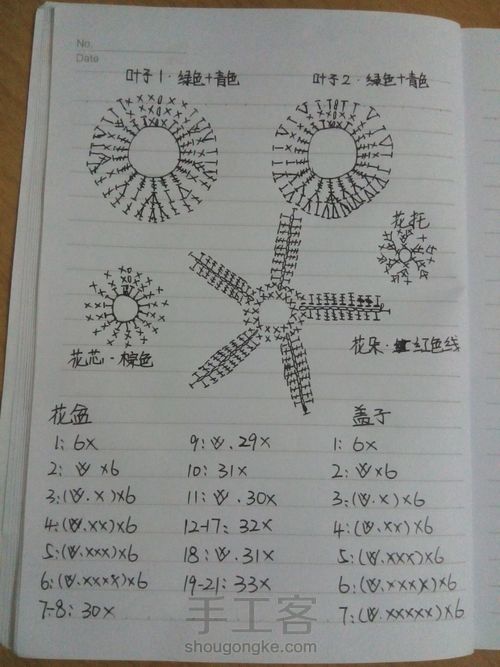 No.
Date
叶子1·绿色+青色
叶子2·绿色+青色
花托
花芯·棕色
花朵·红色线
花盆
1: 6X
2: V×6
3:(V.X)×6
4:(V.XX)×6
5:(V.XXX)×6
6:(V.XXXX)×6
7-8: 30X
9: V.29X
10: 31X
11: V.30X
12-17: 32X
18: V.31X
19-21: 33X
盖子
1: 6X
2: V×6
3:(V.X)×6
4:(V.XX)×6
5:(V.XXX)×6
6:(V.XXXX)×6
7:(V.XXXXX)×6
手工客
shougongke.com